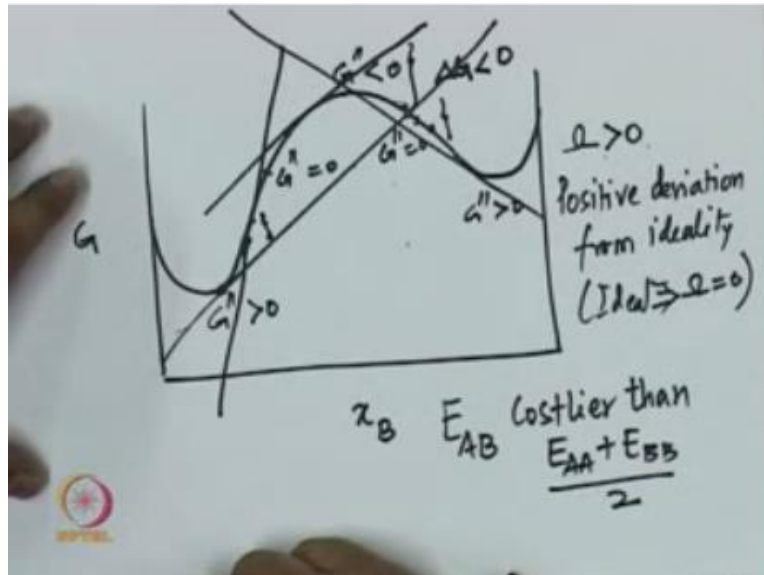 G'' < 0
ΔG < 0
G'' = 0
G'' = 0
G'' > 0
G'' > 0
G
x_B
Ω > 0
Positive deviation
from ideality
(Ideal ⇒ Ω = 0)
E_AB Costlier than
E_AA + E_BB
2
NPTEL